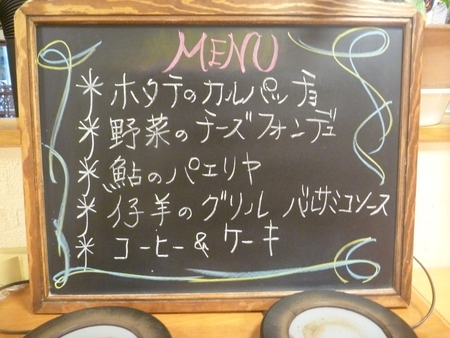 MENU
* ホタテのカルパッチョ
* 野菜のチーズフォンデュ
* 鮎のパエリヤ
* 仔羊のグリル バルサミコソース
* コーヒー&ケーキ